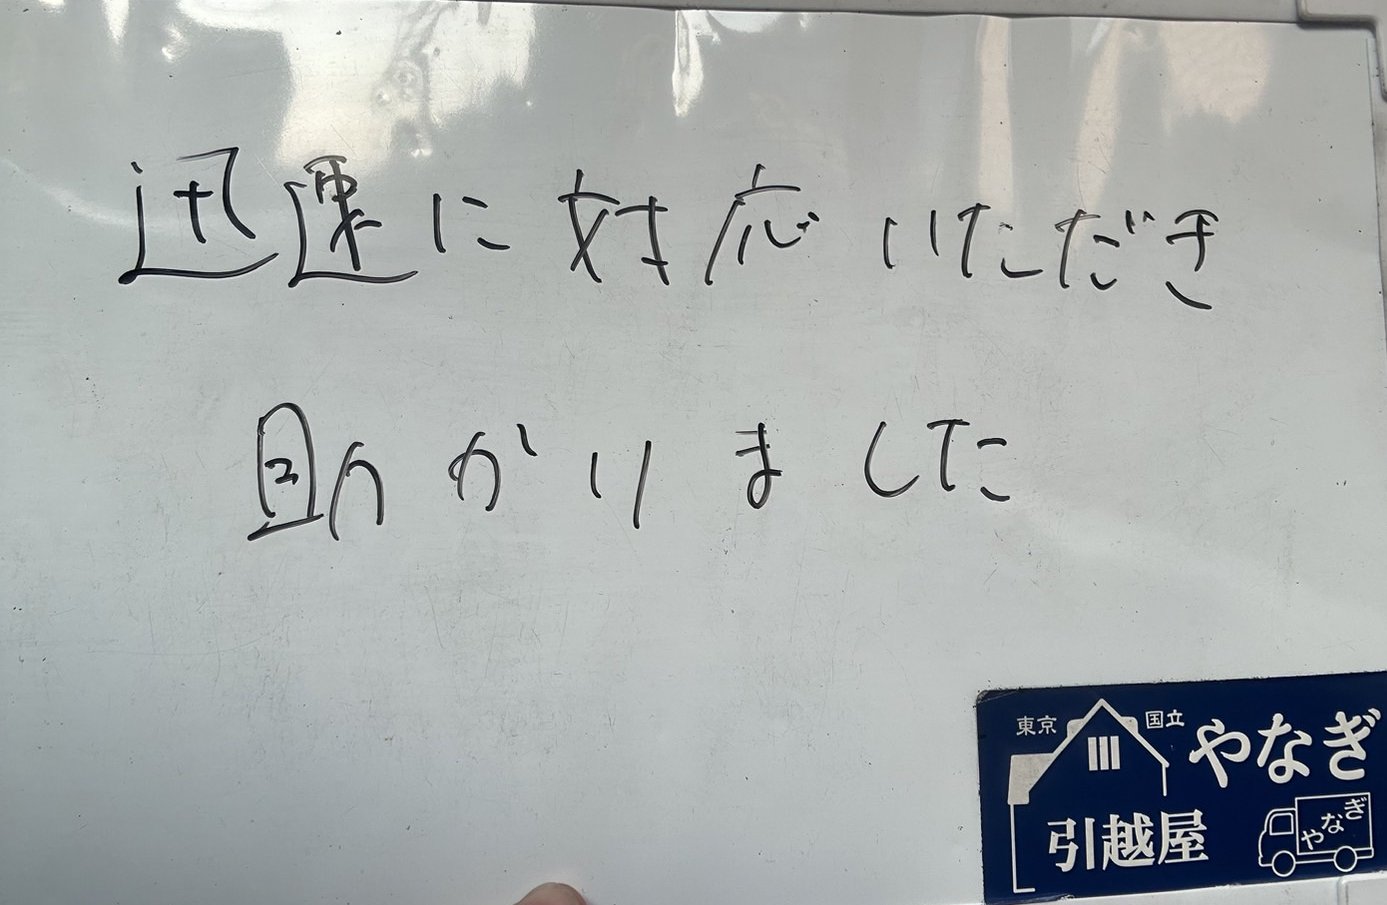 迅速に対応いただき
助かりました
東京 国立 やなぎ
引越屋 やなぎ